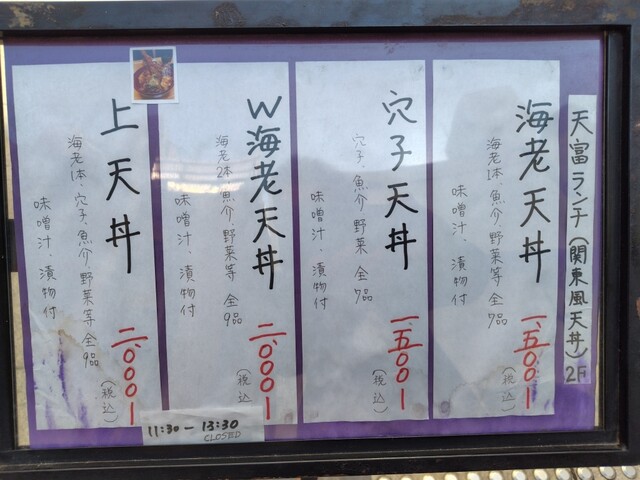 天富ランチ(関東風天丼)2F
海老天丼
海老1本、魚介、野菜等 全7品
味噌汁、漬物付
一、五〇〇ー
(税込)
穴子天丼
穴子、魚介、野菜 全7品
味噌汁、漬物付
一、五〇〇ー
(税込)
W海老天丼
海老2本、魚介、野菜等 全9品
味噌汁、漬物付
二、〇〇〇ー
(税込)
上天丼
海老1本、穴子、魚介、野菜等 全9品
味噌汁、漬物付
二、〇〇〇ー
(税込)
11:30-13:30
CLOSED